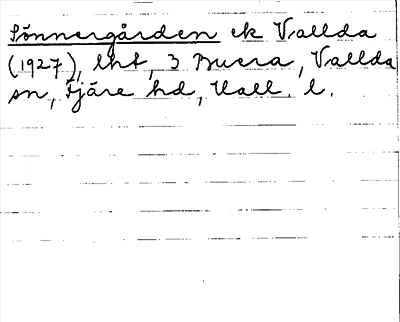 Sönnergården ek Vallda
(1927), lht, 3 Buera, Vallda
sn, Fjäre hd, Hall. l.